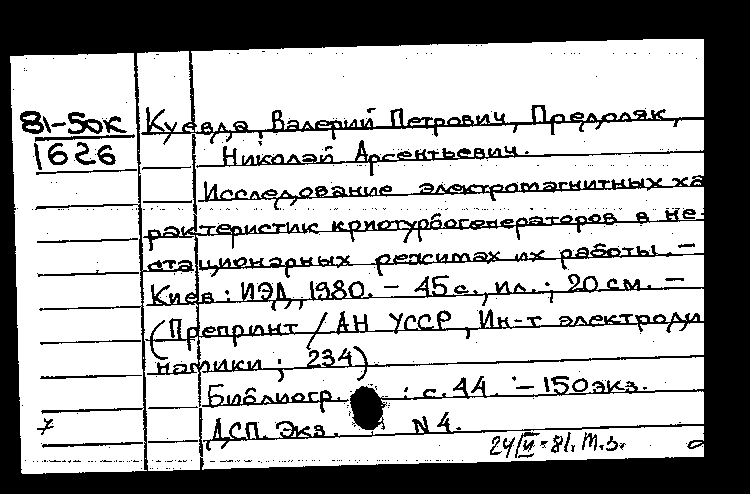 81-50к Куевда, Валерий Петрович, Предоляк,
1626 Николай Арсентьевич.
Исследование электромагнитных ха
рактеристик криотурбогенераторов в не-
стационарных режимах их работы. -
Киев: ИЭД, 1980. - 45 с., ил.; 20 см. -
(Препринт / АН УССР, Ин-т электроди
намики; 234)
Библиогр. : с. 44. - 150 экз.
ДСП. Экз. N 4.